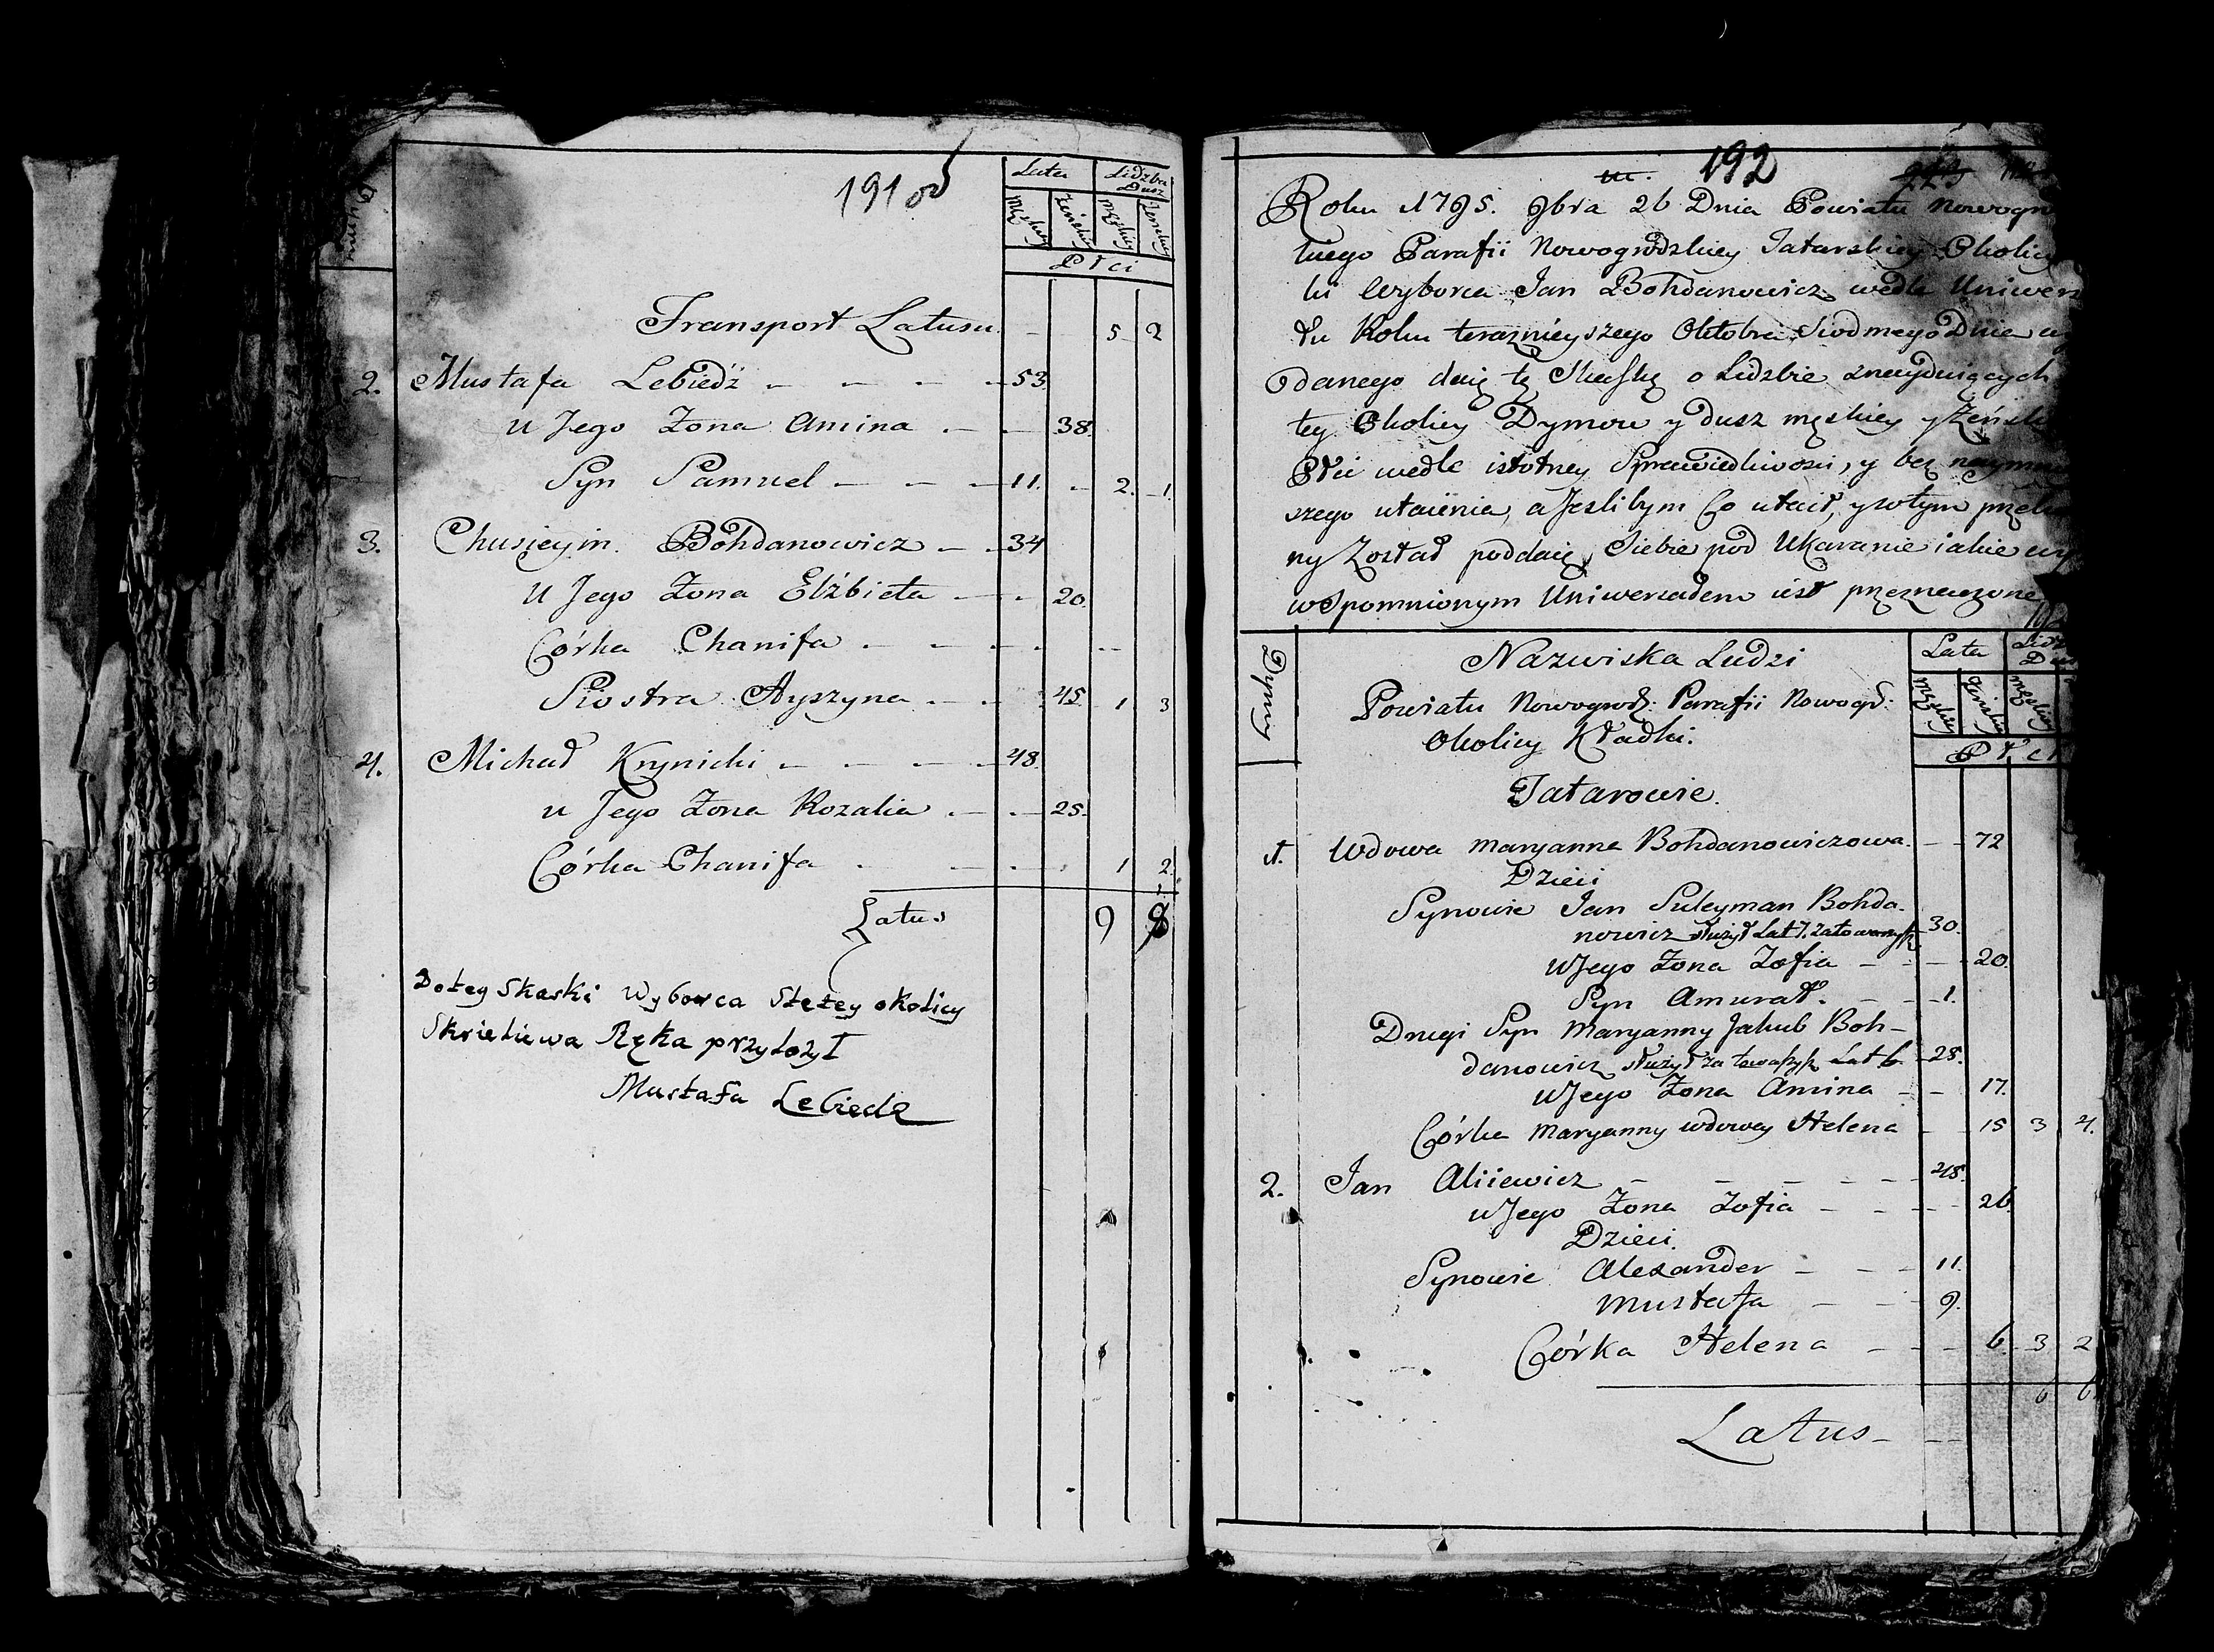 191 od
Lata Lidzba Dusz
Męskiey Żenskiey Męskiey Żenskiey
Płci
Transport Latusu - - 5 2
2. Mustafa Lebiedź - - - - 53
u Jego Żona Amina - - 38.
Syn Samuel - - - 11. - 2. 1.
3. Chusieyin Bohdanowicz - - 34
U Jego Żona Elżbieta - - 20.
Córka Chanifa - - - -
Siostra Ayszyna - - 45. 1 3
4. Michał Krynicki - - - - 48.
u Jego Żona Rozalia - - 25.
Córka Chanifa - - - 1 2.
Latus 9 8
Dotey Skaski Wyborca Stetey okolicy
Skrieliewa Ręka przyłożył
Mustafa Lebiedz
192 223
Roku 1795. 9bra 26 Dnia Powiatu Nowogro
kiego Parafii Nowogrodzkiey Tatarskiey Okolicy
ki Wyborca Jan Bohdanowicz wedle Uniwers
łu Roku teraznieyszego Oktobra Siodmego Dnia wy
danego daię tę Skaskę o Lidzbie znayduiących
tey Okolicy Dymow y dusz męskiey y Żeńskiey
Płci wedle istotney Sprawiedliwosci, y bez naymn
szego utaienia, a Jeslibym Co utaił, y wtym przeko
ny Został poddaię Siebie pod Ukaranie iakie wy
wspomnionym Uniwersałem iest przeznaczone
Dymy Nazwiska Ludzi Lata Lidz Dus
Powiatu Nowogrodz: Parafii Nowogr: Męskiey Żenskiey Męskiey
Okolicy Kładki. Płci
Tatarowie.
1. Wdowa Maryanna Bohdanowiczowa. - - 72
Dzieci
Synowie Jan Suleyman Bohda-
nowicz służył Lat 7. zatowarzysz 30.
UJego Żona Zofia - - - 20.
Syn Amurat. - - 1.
Drugi Syn Maryanny Jakub Boh-
danowicz służył za towarzysz Lat 6 28.
UJego Żona Amina - - 17.
Córka Maryanny wdowy Helena 15 3 4.
2. Jan Aliiewicz - - - - - 48.
uJego Żona Zofia - - - - 26
Dzieci.
Synowie Alexander - - - 11.
Mustafa - - - 9.
Córka Helena - - - 6. 3 2
6 6
Latus - - -